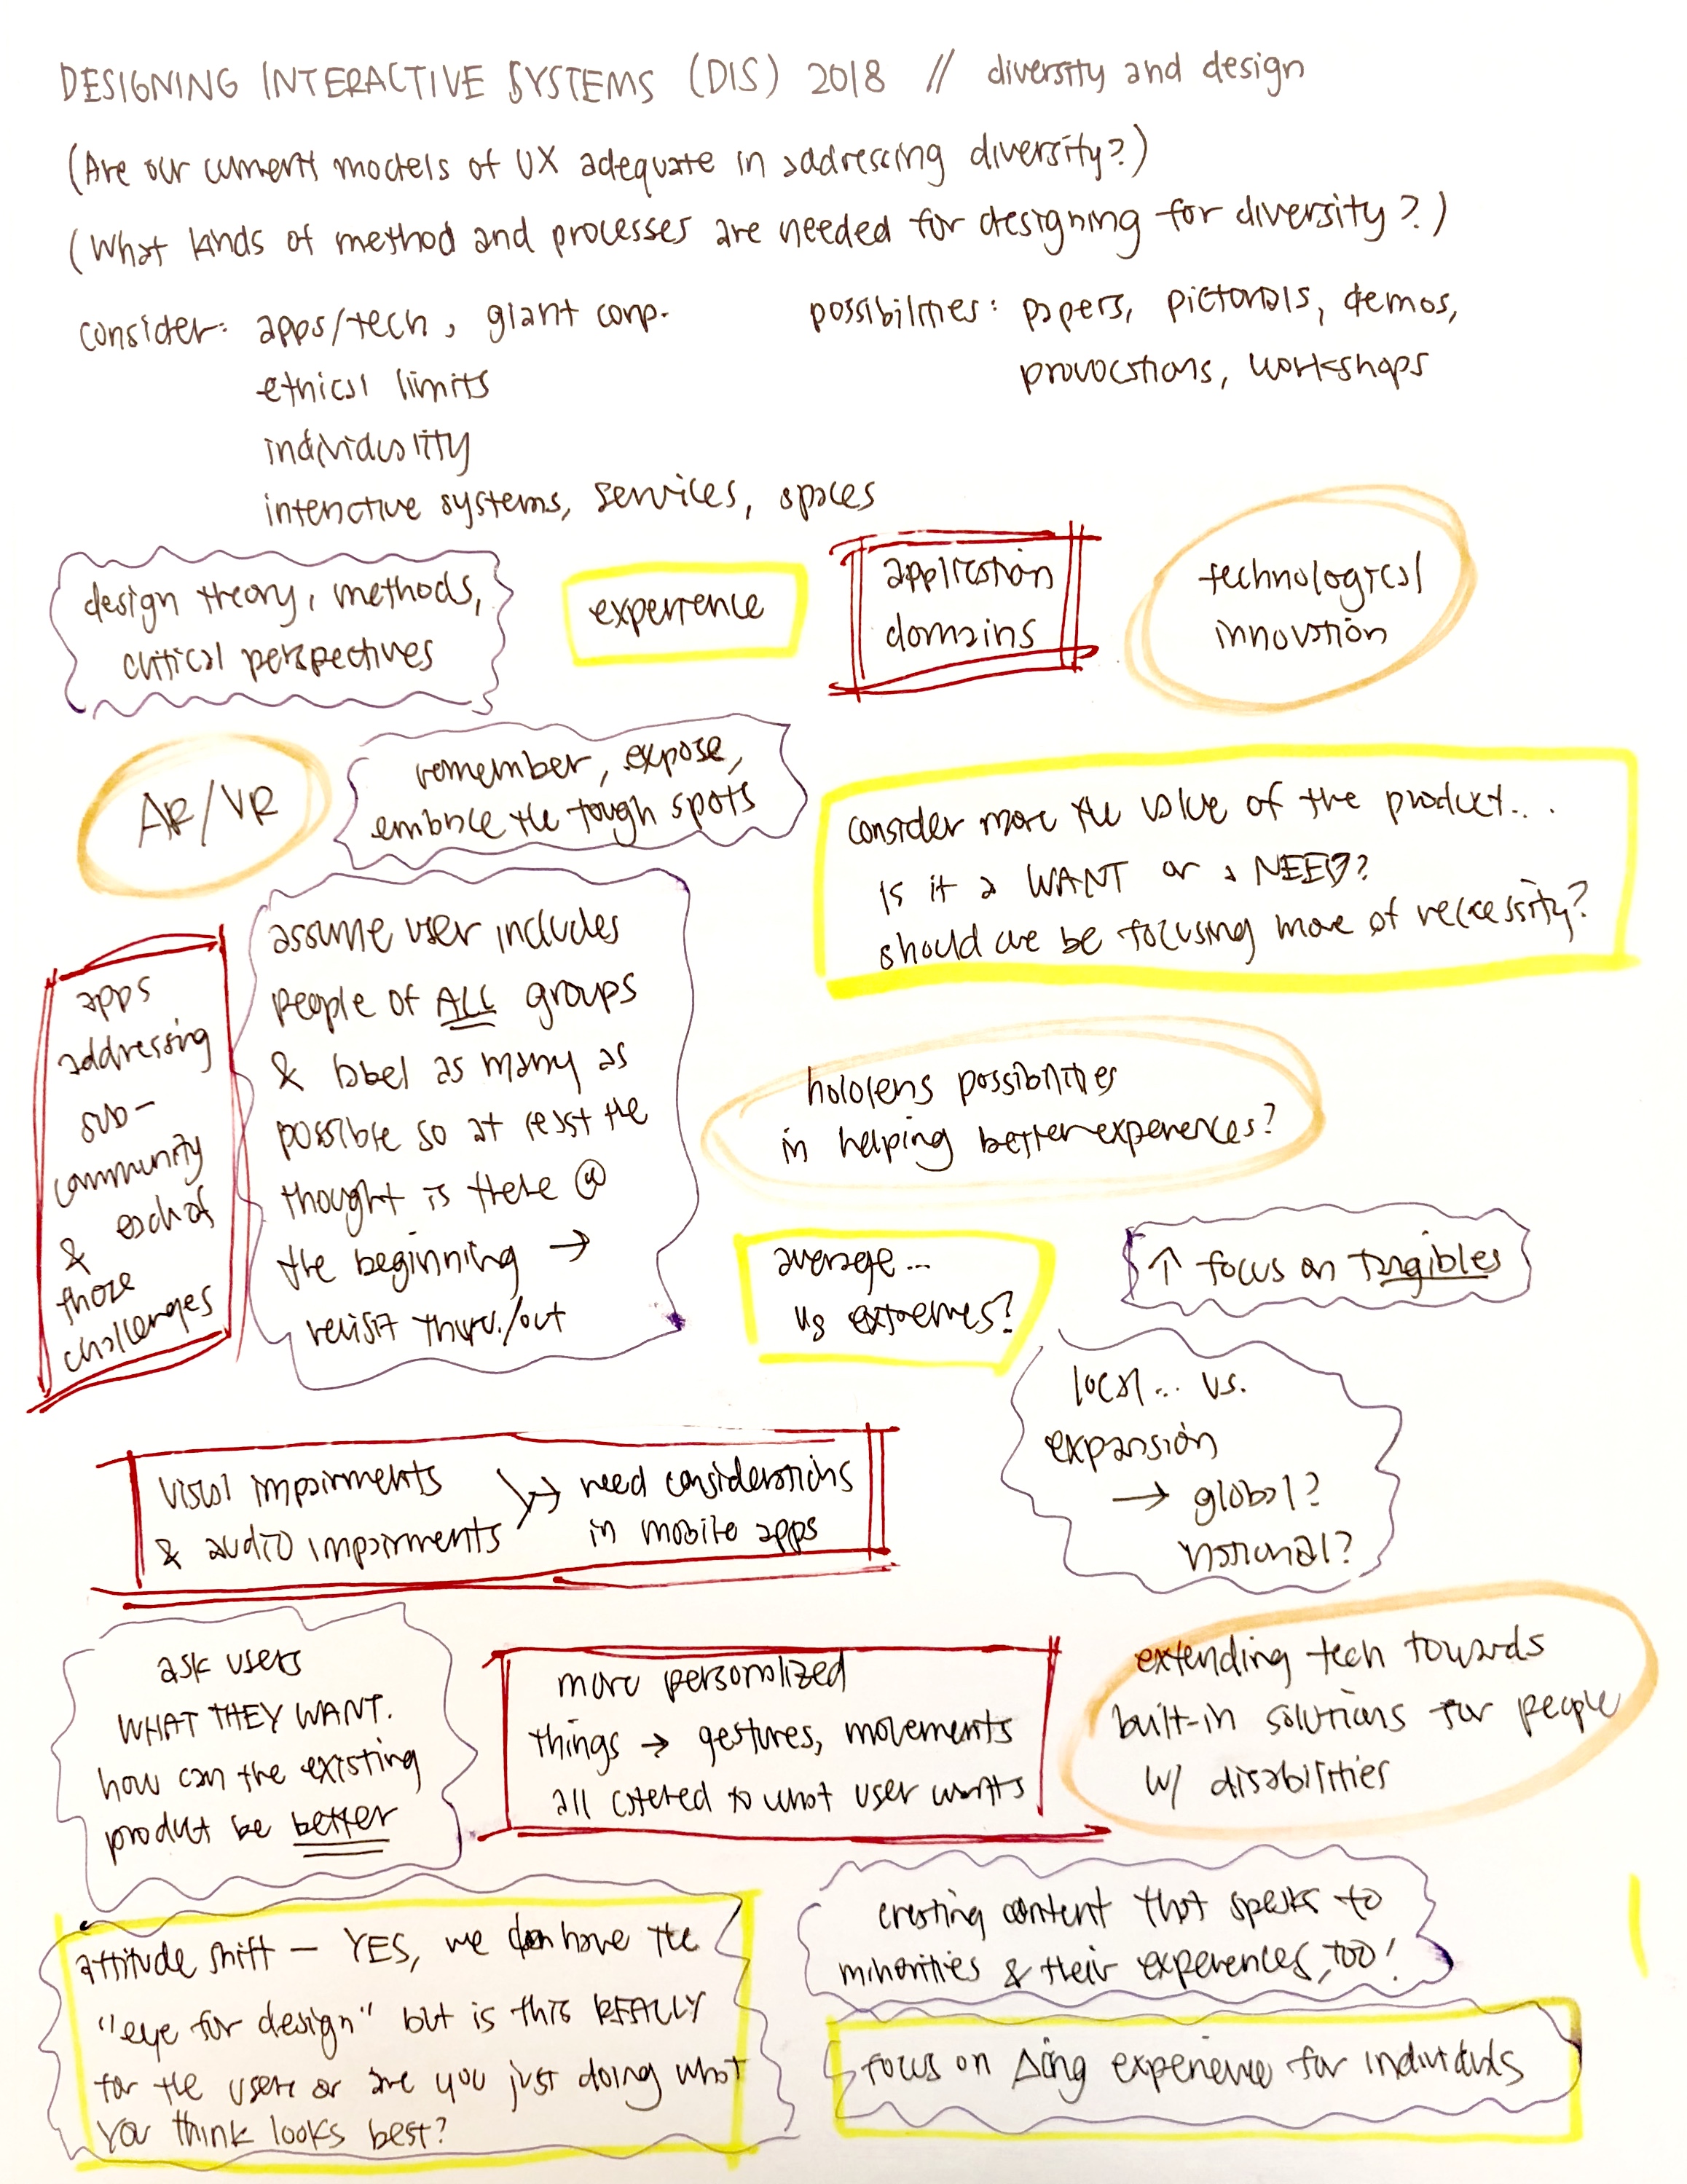 DESIGNING INTERACTIVE SYSTEMS (DIS) 2018 // diversity and design
(Are our current models of UX adequate in addressing diversity?)
(What kinds of method and processes are needed for designing for diversity?)
consider: apps/tech, giant corp.
ethical limits
individuality
interactive systems, services, spaces
possibilities: papers, pictorials, demos,
provocations, workshops
design theory, methods,
critical perspectives
experience
application
domains
technological
innovation
AR/VR
remember, expose,
embrace the tough spots
consider more the value of the product...
Is it a WANT or a NEED?
should we be focusing more of neccessity?
apps
addressing
sub-
community
& each of
those
challenges
assume user includes
people of ALL groups
& label as many as
possible so at least the
thought is there @
the beginning →
revisit thru./out
hololens possibilities
in helping better experiences?
average...
vs extremes?
↑ focus on Tangibles
local... vs.
expansion
→ global?
national?
visual impairments
& audio impairments
→ need considerations
in mobile apps
ask users
WHAT THEY WANT.
how can the existing
product be better
more personalized
things → gestures, movements
all catered to what user wants
extending tech towards
built-in solutions for people
w/ disabilities
attitude shift — YES, we have the
"eye for design" but is this REALLY
for the users or are you just doing what
you think looks best?
creating content that speaks to
minorities & their experiences, too!
focus on Δing experience for individuals